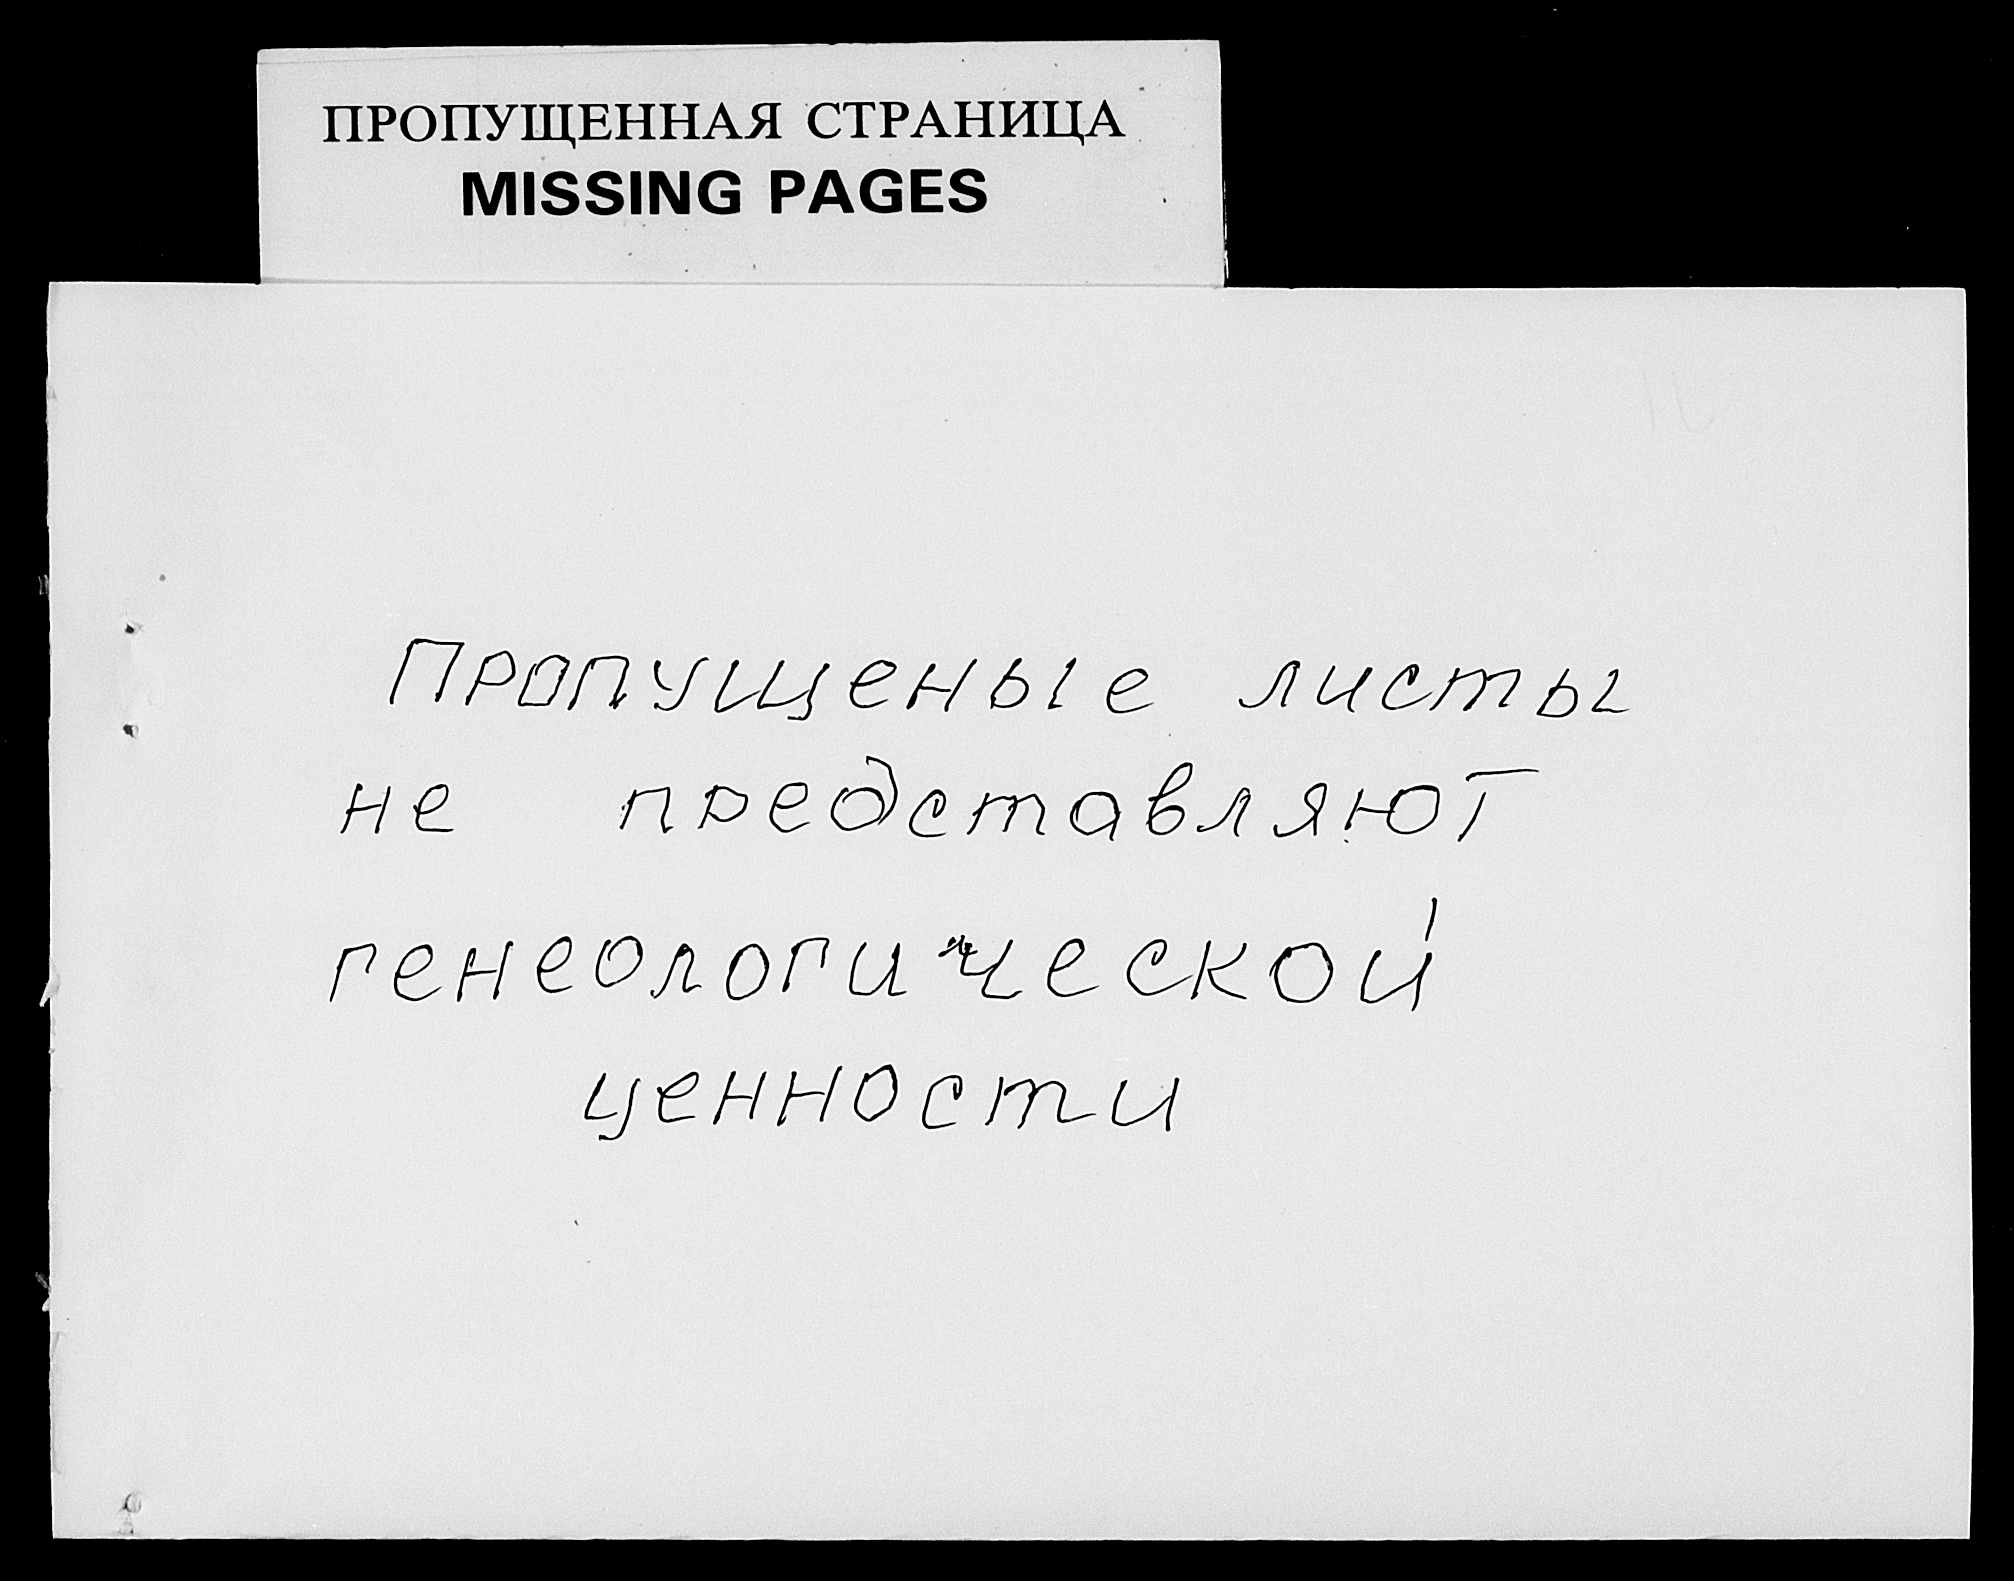 ПРОПУЩЕННАЯ СТРАНИЦА
MISSING PAGES
Пропущеные листы
не представляют
генеологической
ценности